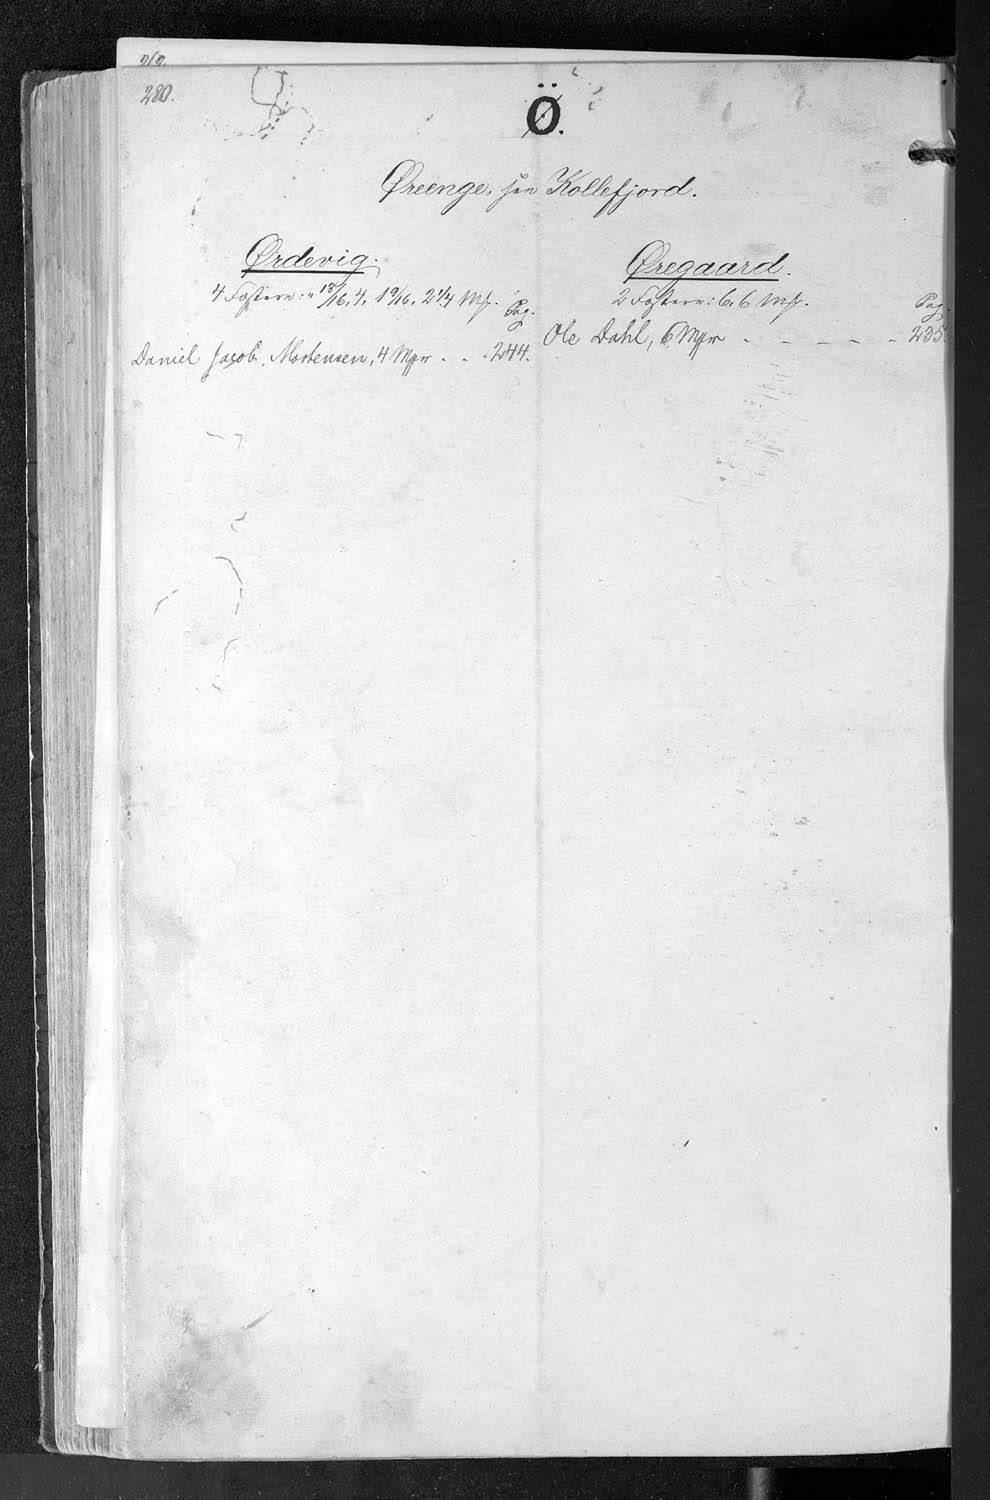 280.
Ö.
Øreenge, see Kollefjord.
Ørdevig.
4 Fæstere: " 15/16, 4, 1 9/16, 2 1/4 Mk.
Pag.
Daniel Jacob Mortensen, 4 Mkr . . . 244.
Øregaard.
2 Fæstere: 6, 6 Mk.
Pag.
Ole Dahl, 6 Mkr . - - - - 235.